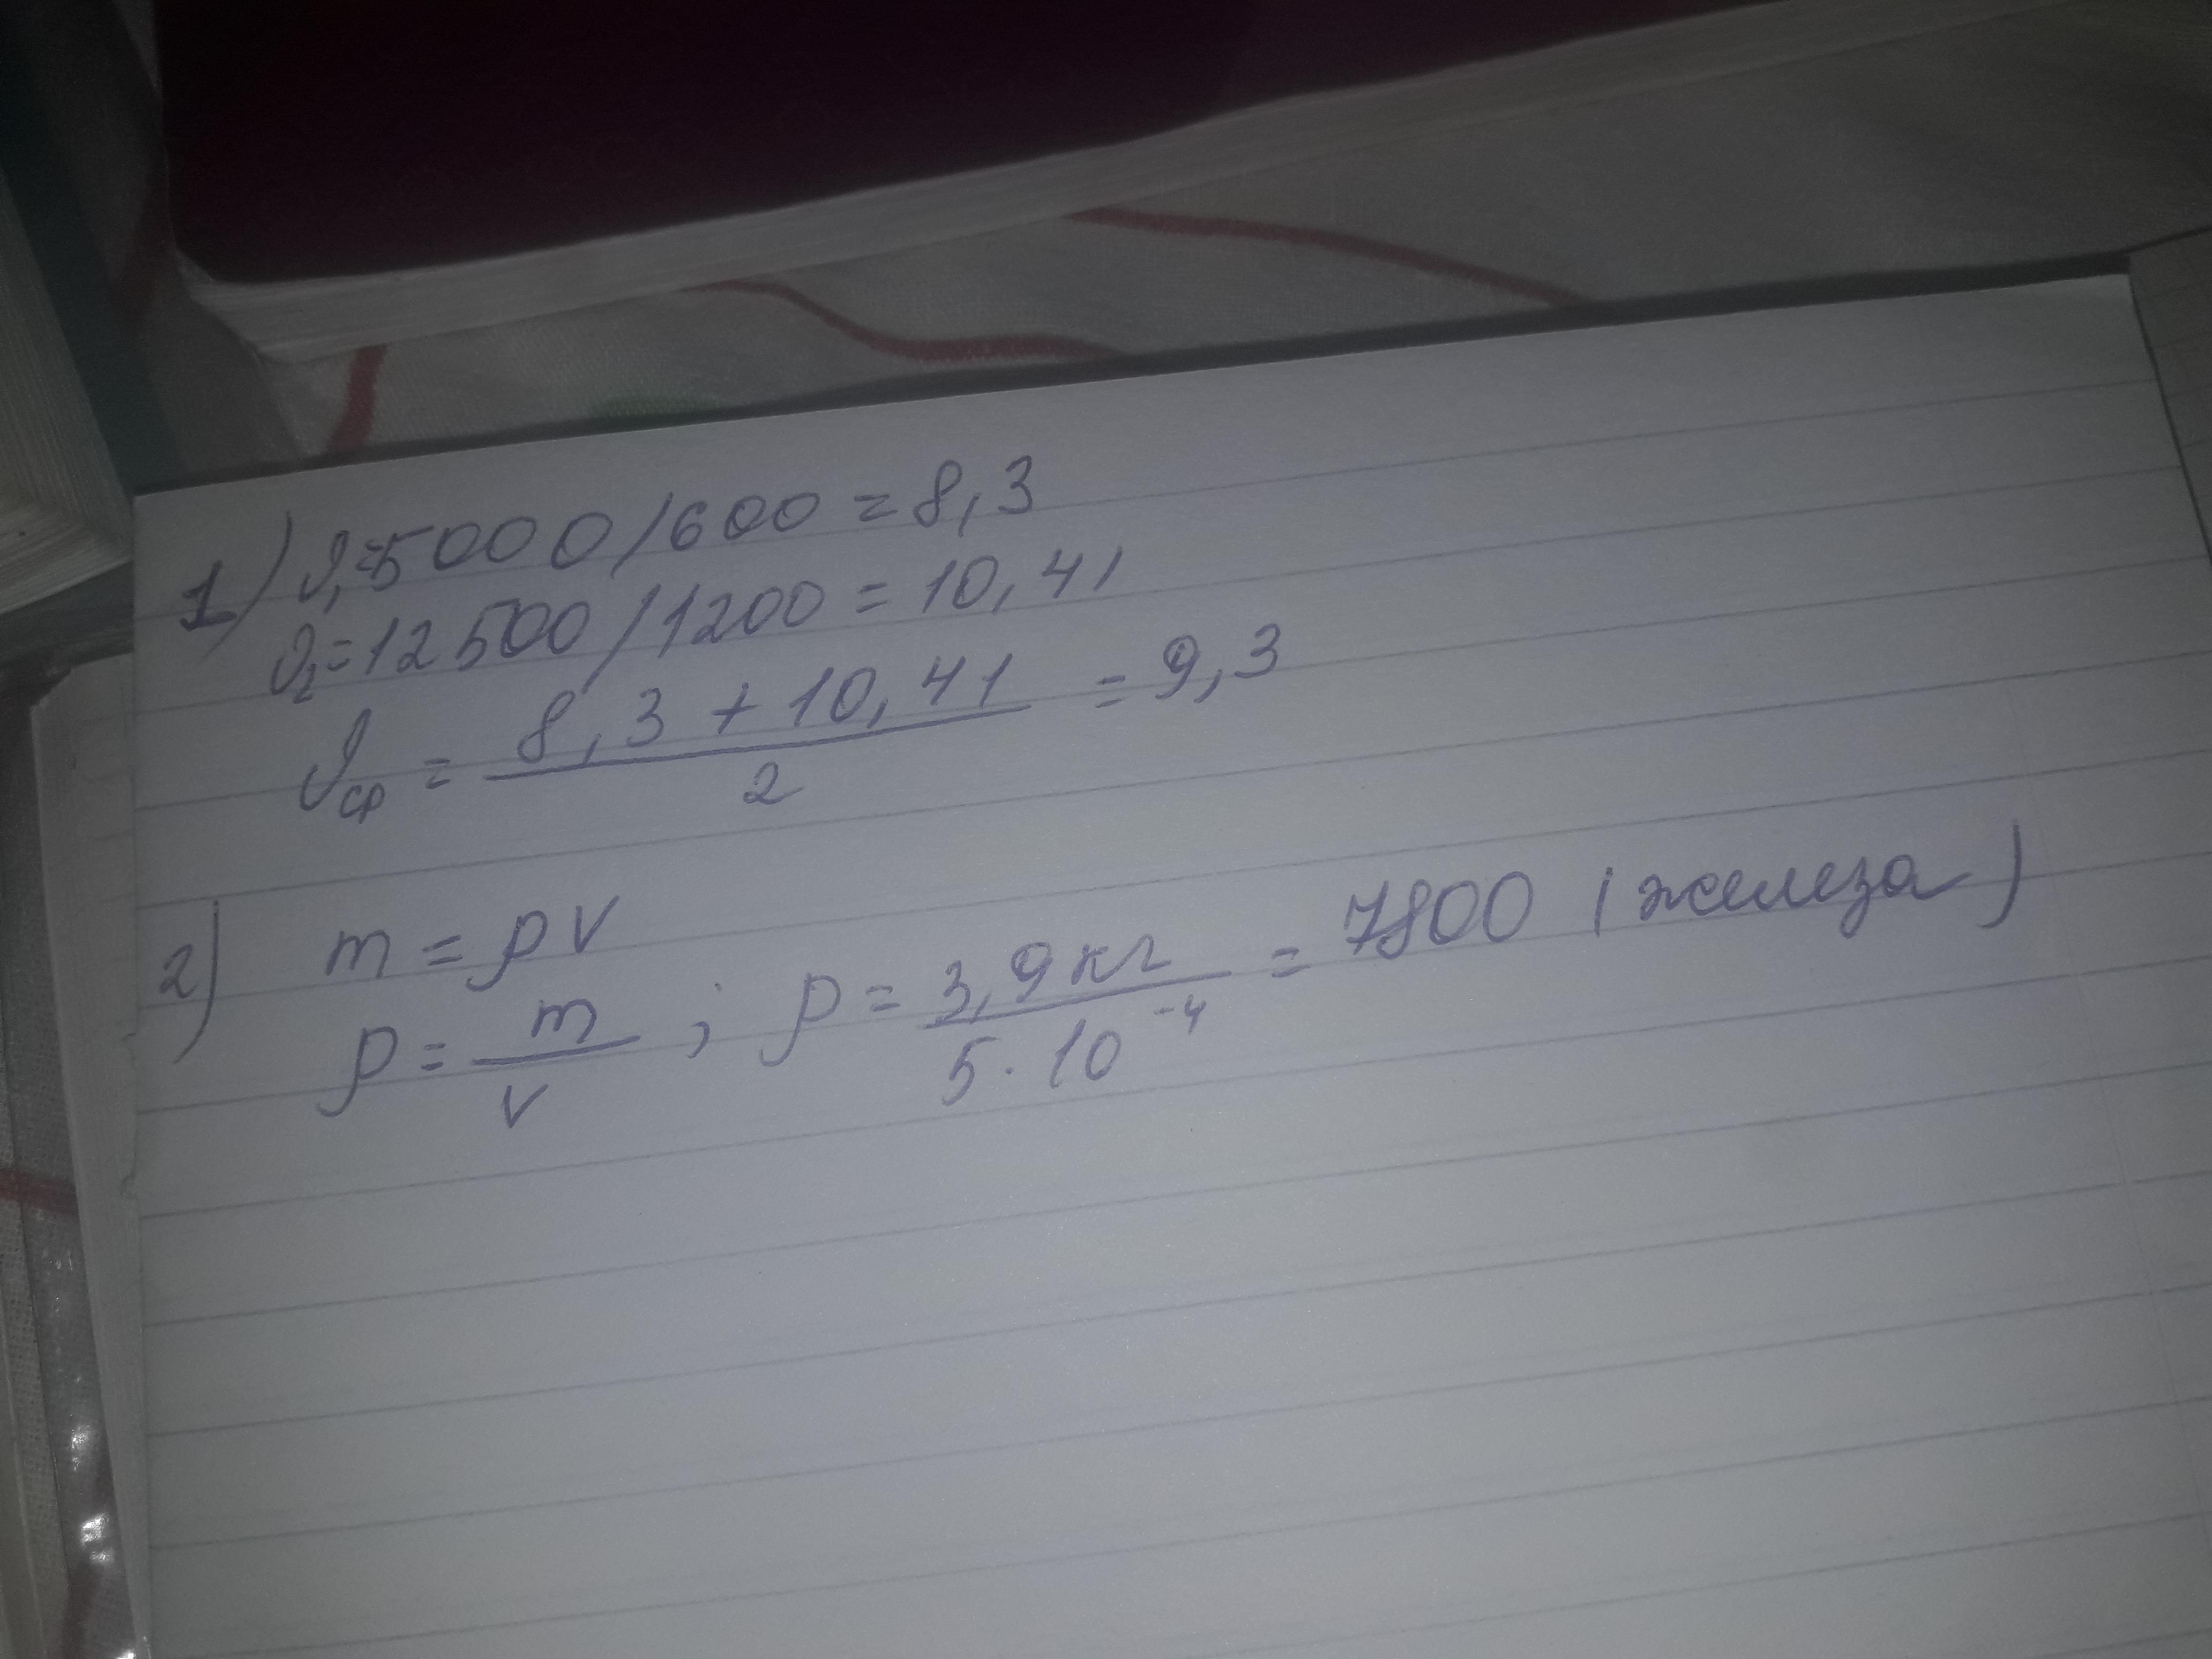 1) υ₁=5000/600 = 8,3
υ₂=12500/1200 = 10,41
υср = (8,3 + 10,41)/2 = 9,3
2) m = ρV
ρ = m/V ; ρ = 3,9кг/(5·10⁻⁴) = 7800 (железа)